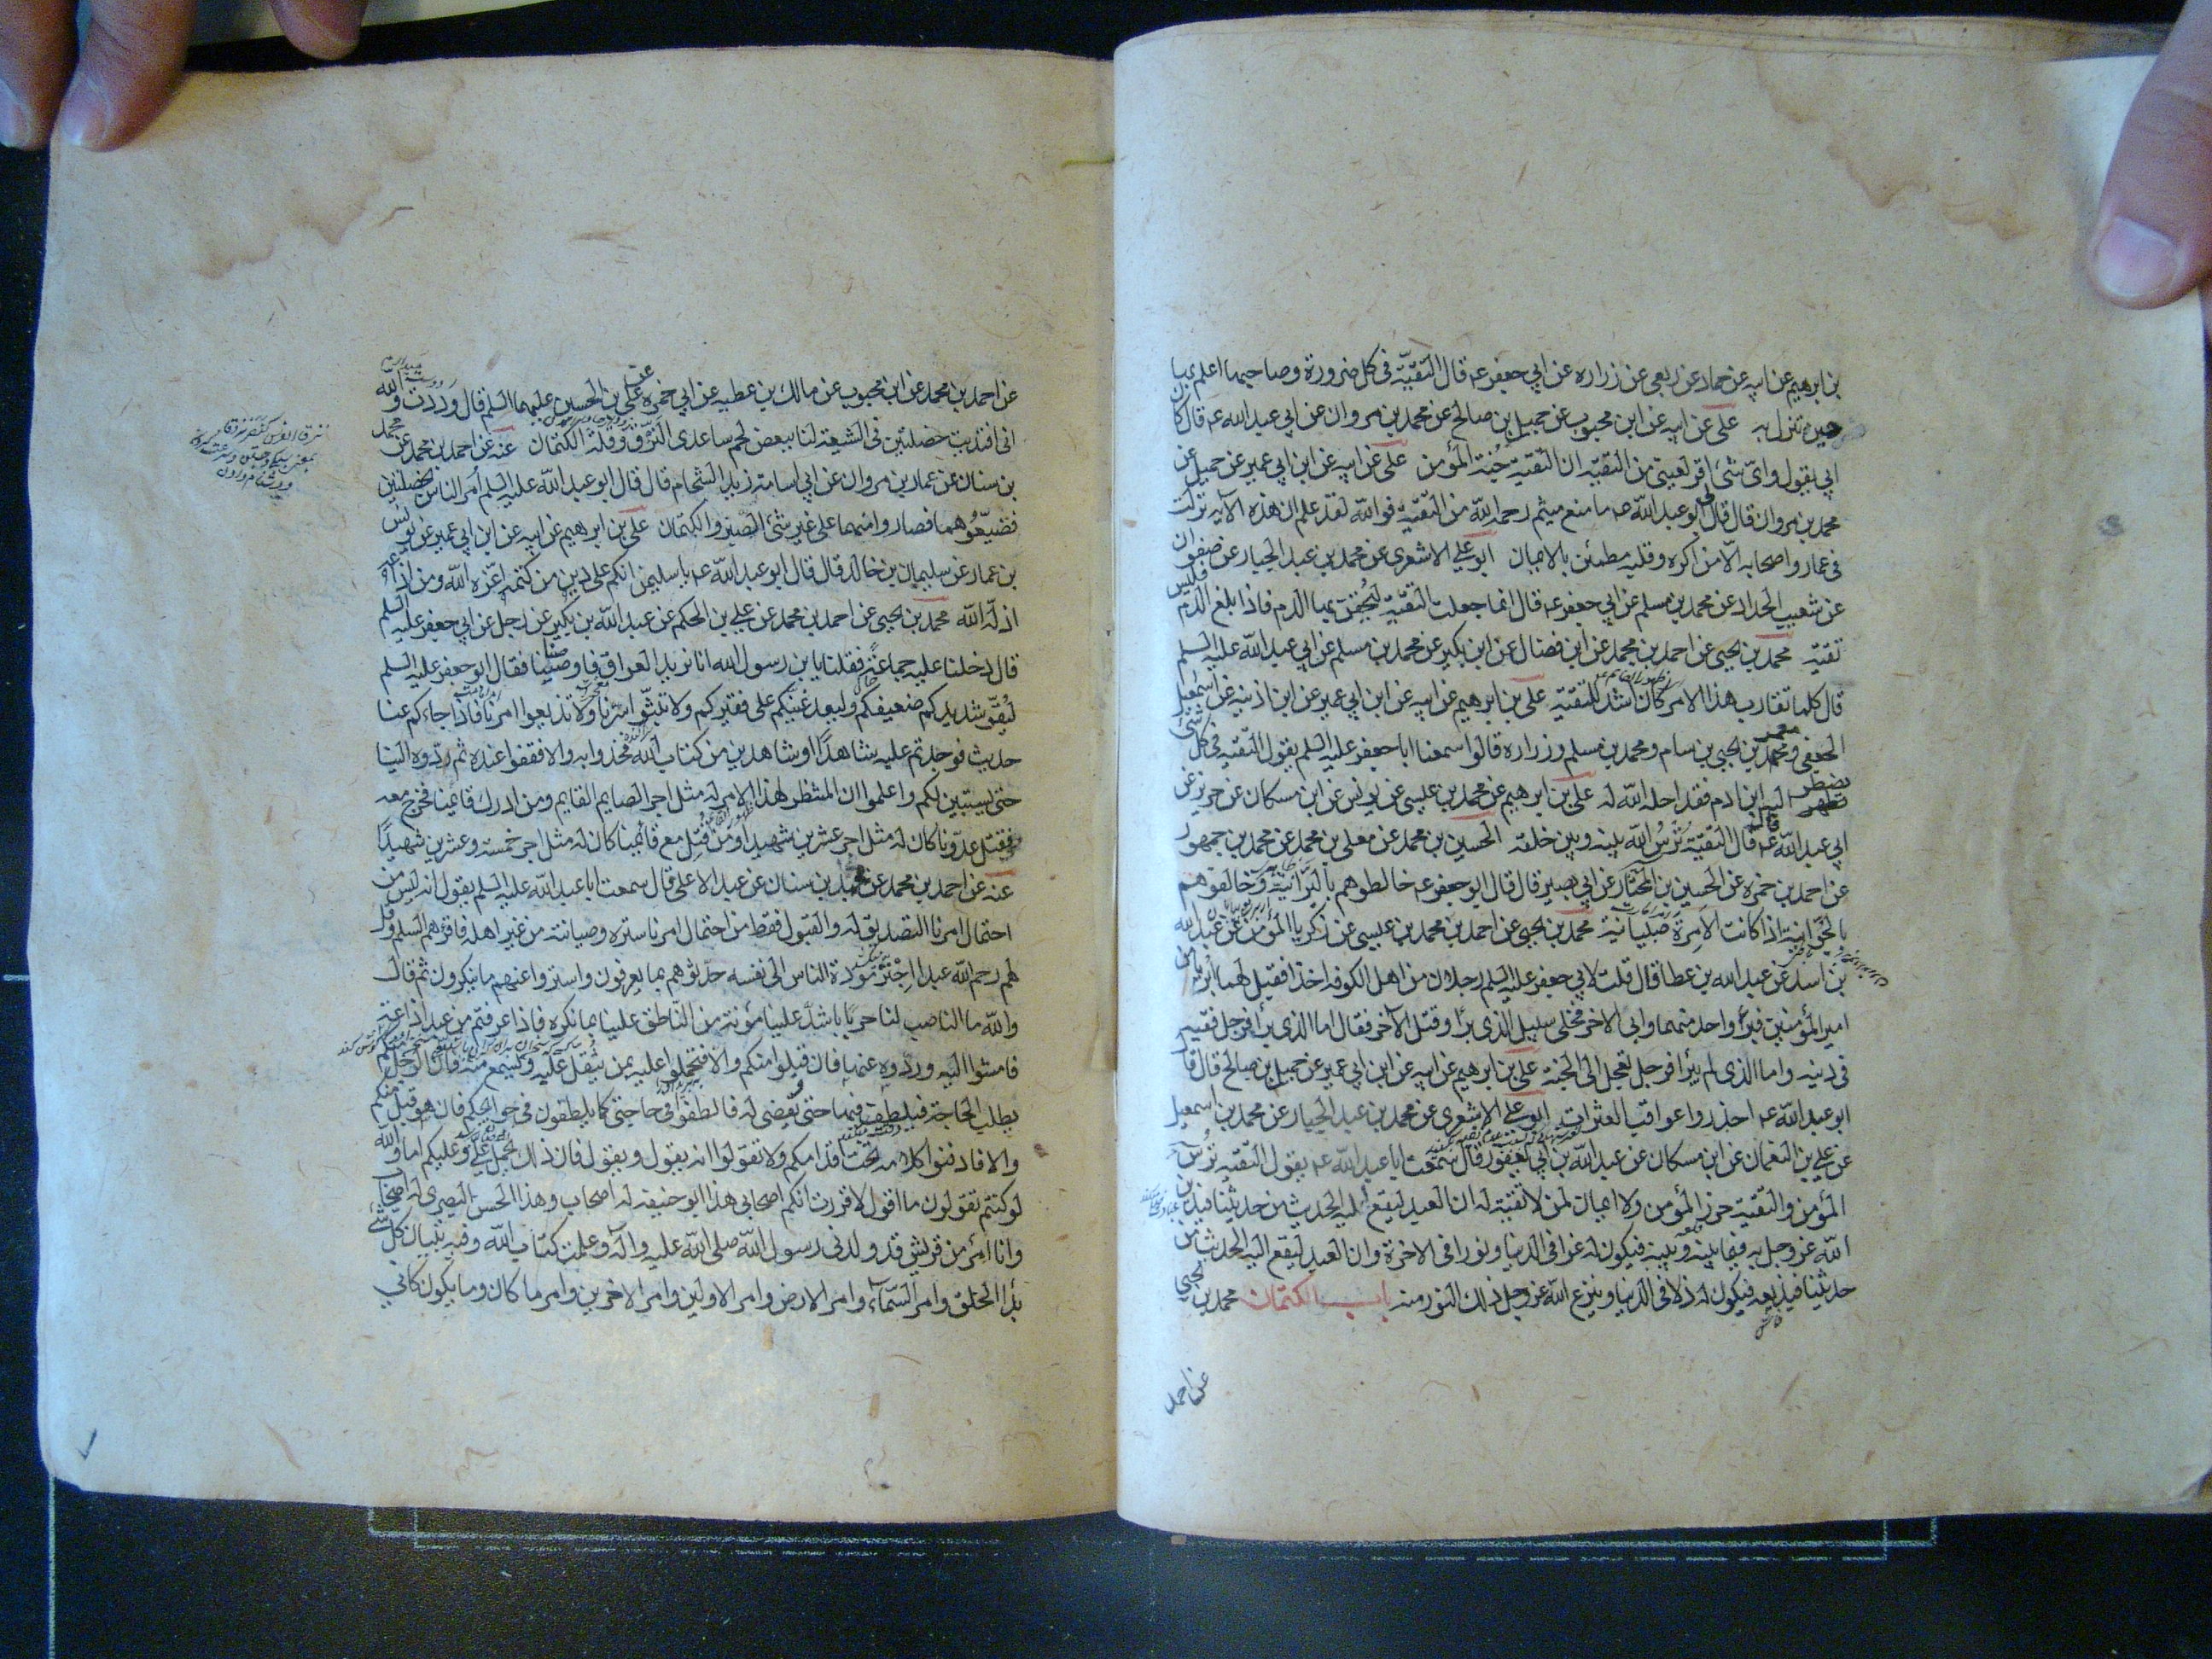 بن ابرهيم عن ابيه عن حماد عن ربعى عن زراره عن ابي جعفر عه قال التقيّة فى كل ضرورة وصاحبها اعلم بها
حين تنزل به على عن ابيه عن ابن محبوب عن جميل بن صالح عن محمد بن مروان عن ابي عبد الله عه قال كان
ابي يقول واىّ شئ اقر لعينى من التقيّه ان التقية جُنة المؤمن على عن ابيه عن ابن ابي عمير عن جميل عن
محمد بن مروان قال قال لى ابو عبد الله عه ما منع ميثم رحمه الله من التقيّة فو الله لقد علم ان هذه الآيه نزلت
فى عمار واصحابه الّا من اكره وقلبه مطمئن بالايمان ابو على الاشعرى عن محمد بن عبد الجبار عن صفوان
عن شعيب الحداد عن محمد بن مسلم عن ابي جعفر عه قال انما جعلت التقيّة ليُحقن بها الدم فاذا بلغ الدم فليس
تقيّة محمد بن يحيى عن احمد بن محمد عن ابن فضال عن ابن بكير عن محمد بن مسلم عن ابي عبد الله عليه السلم
قال كلما تقارب هذا الامر كان اشد للتقيّه على بن ابرهيم عن ابيه عن ابن ابي عمير عن ابن اذينه عن اسمعيل
الجعفى ومعمر بن يحيى بن سام ومحمد بن مسلم وزراره قالوا سمعنا ابا جعفر عليه السلم يقول التقيّه فى كل شئ
يضطر اليه ابن ادم فقد احله الله له على بن ابرهيم عن محمد بن عيسى عن يونس عن ابن مسكان عن حريز عن
ابي عبد الله عه قال قال التقيّة تُرْسُ الله بينه وبين خلقه الحسين بن محمد عن معلى بن محمد عن محمد بن جمهور
عن احمد بن حمزه عن الحسين بن المختار عن ابي بصير قال قال ابو جعفر عه خالطوهم بالبَرّانيّة وخالفوهم
بالجَوّانية اذا كانت الامِرة صبْيانية محمد بن يحيى عن احمد بن محمد بن عيسى عن زكريا المؤمن عن عبد الله
بن اسد عن عبد الله بن عطا قال قلت لابي جعفر عليه السلم رجلان من اهل الكوفه اخذا فقيل لهما ابرئا من
امير المؤمنين فبرئ واحد منهما وابى الاخر فخلى سبيل الذى برأ وقتل الآخر فقال اما الذى برأ فرجل فقيه
فى دينه واما الذى لم يبرأ فرجل تعجل الى الجنة على بن ابرهيم عن ابيه عن ابن ابي عمير عن جميل بن صالح قال قال
ابو عبد الله عه احذروا عواقب العثرات ابو على الاشعرى عن محمد بن عبد الجبار عن محمد بن اسمعيل
عن على بن النعمان عن ابن مسكان عن عبد الله بن ابي يعفور قال سمعت ابا عبد الله عه يقول التقيّه تُرْس
المؤمن والتقيّة حرز المؤمن ولا ايمان لمن لا تقيّة له ان العبد ليقع اليه الحديث من حديثنا فيدين
الله عز وجل به فيما بينه وبينه فيكون له عزا فى الدنيا ونورا فى الاخرة وان العبد ليقع اليه الحديث من
حديثنا فيذيعه فيكون له ذلا فى الدنيا وينزع الله عز وجل ذلك النور منه باب الكتمان محمد بن يحيى
عن احمد
عن احمد بن محمد عن ابن محبوب عن مالك بن عطيه عن ابي حمزه عن على بن الحسين عليهما السلم قال وَدِدتُ والله
انى افتديت خصلتين فى الشيعة لنا ببعض لحم ساعدى النَزَق وقلة الكتمان عنه عن احمد بن محمد عن محمد
بن سنان عن عمار بن مروان عن ابي اسامة زيد الشحام قال قال ابو عبد الله عليه السلم اُمر الناس بخصلتين
فضيّعُوهما فصاروا منهما على غير شئ الصبر والكتمان على بن ابرهيم عن ابيه عن ابن ابي عمير عن يونس
بن عمار عن سليمان بن خالد قال قال ابو عبد الله عه يا سليمن انكم على دين من كتمه اعزّه الله ومن اذاعه
اذلّه الله محمد بن يحيى عن احمد بن محمد عن على بن الحكم عن عبد الله بن بكير عن رجل عن ابي جعفر عليه السلم
قال دخلنا عليه جماعة فقلنا يا بن رسول الله انا نريد العراق فاوصنا فقال ابو جعفر عليه السلم
ليُقوّ شديدكم ضعيفكم وليعد غنيّكم على فقيركم ولا تبثّوا سرّنا ولا تذيعوا امرنا فاذا جاءكم عنا
حديث فوجدتم عليه شاهدًا او شاهدين من كتاب الله فخذوا به والا فقفوا عنده ثم ردّوه الينا
حتى يستبين لكم واعلموا ان المنتظر لهذا الامر له مثل اجر الصايم القايم ومن ادرك قائمنا فخرج معه
فقتل عدّونا كان له مثل اجر عشرين شهيدا ومن قُتِل مع قائمنا كان له مثل اجر خمسة وعشرين شهيدًا
عنه عن احمد بن محمد عن محمد بن سنان عن عبد الاعلى قال سمعت ابا عبد الله عليه السلم يقول انه ليس من
احتمال امرنا التصديق له والقبول فقط من احتمال امرنا ستره وصيانته من غير اهله فاقرهم السلم وقل
لهم رحم الله عبدا اجْتَرّ مودة الناس الى نفسه حدّثوهم بما يعرفون واستروا عنهم ما ينكرون ثم قال
والله ما الناصب لنا حربًا باشدّ علينا مؤنة من الناطق علينا بما نكره فاذا عرفتم من عبد اذاعة
فامشوا اليه وردّوه عنها فان قبلوا منكم والا فتحملوا عليه بمن يثقل عليه ويسمع منه فان الرجل منكم
يطلب الحاجة فيلطف فيها حتى تُقضى له فالطفوا فى حاجتى كما يلطفون فى حوائجكم فان هو قبل منكم
والا فادفنوا كلامه تحت اقدامكم ولا تقولوا انه يقول ويقول فان ذلك يحمل علىّ وعليكم اما والله
لو كنتم تقولون ما اقول لاقررت انكم اصحابى هذا ابو حنيفه له اصحاب وهذا الحسن البصرى له اصحاب
وانا امرؤ من قريش قد ولدنى رسول الله صلى الله عليه واله وعلمت كتاب الله وفيه تبيان كل شئ
بدأ الخلق وامر السّماء وامر الارض وامر الاولين وامر الاخرين وامر ما كان وما يكون كانى